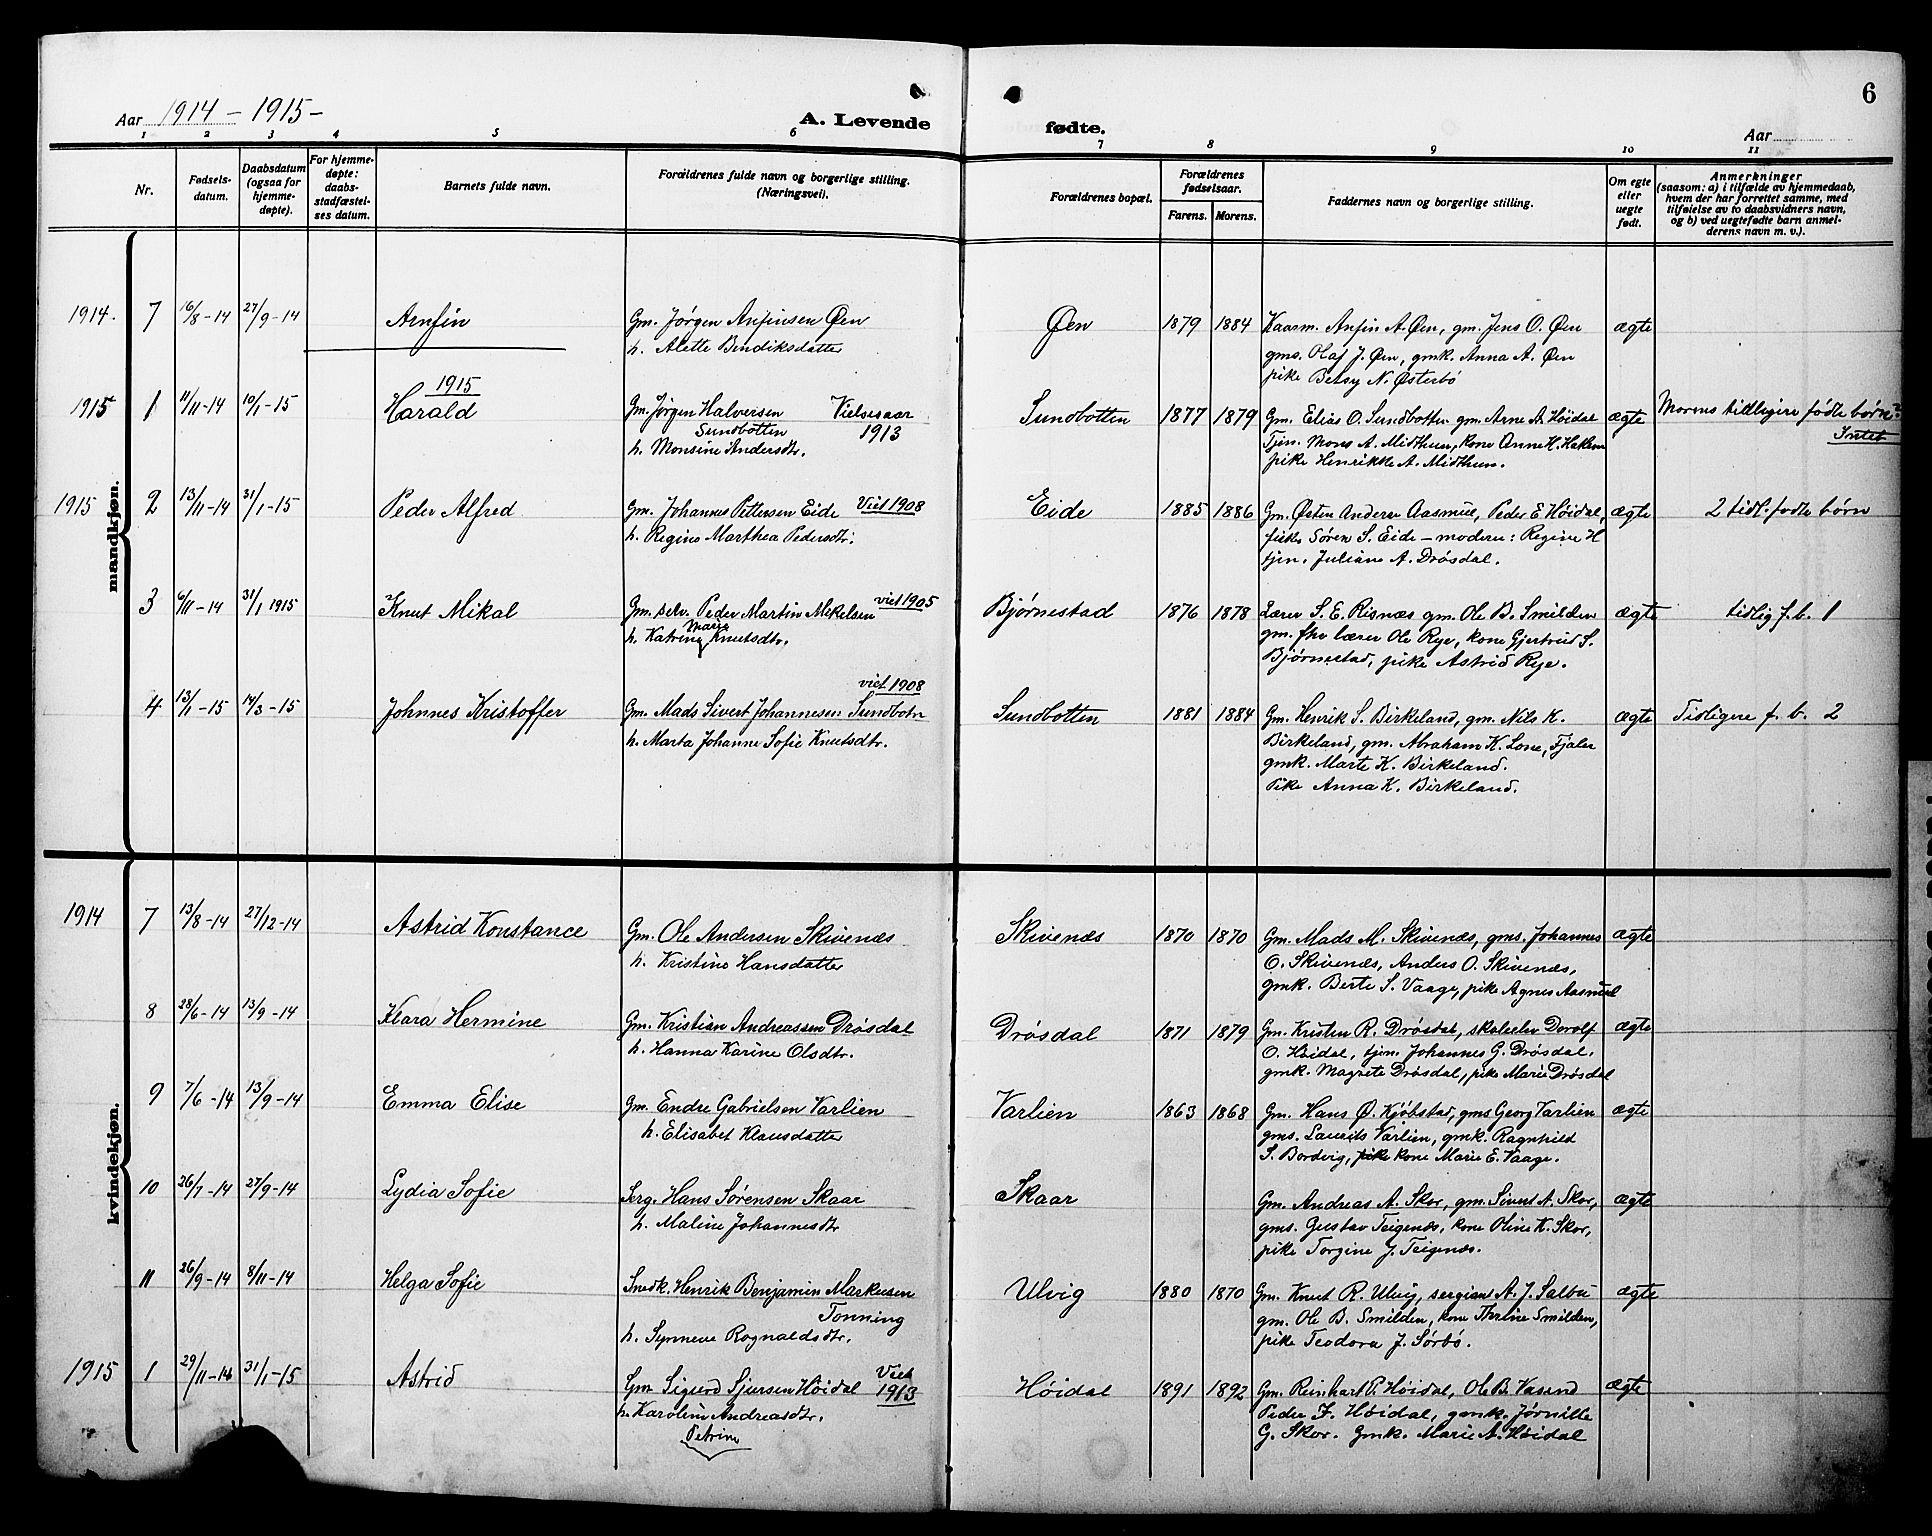 Aar 1914 – 1915 –
A. Levende
fødte.
6
Aar
1 2 3 4 5 6 7 8 9 10 11
Nr.
Fødsels-
datum.
Daabsdatum
(ogsaa for
hjemme-
døpte).
For hjemme-
døpte:
daabs-
stadfæstel-
ses datum.
Barnets fulde navn.
Forældrenes fulde navn og borgerlige stilling.
(Næringsvei).
Forældrenes bopæl.
Forældrenes
fødselsaar.
Farens. Morens.
Faddernes navn og borgerlige stilling.
Om egte
eller
uegte
født.
Anmerkninger
(saasom: a) i tilfælde av hjemmedaab,
hvem der har forrettet samme, med
tilføielse av to daabsvidners navn,
og b) ved uegtefødte barn anmel-
derens navn m. v.).
mandkjøn.
1914. 7 16/8-14 27/9-14 Arnfin Gm. Jørgen Anfinsen Øen Øen 1879 1884 Kaarm. Anfin A. Øen, gm. Jens O. Øen ægte
h. Alette Bendiksdatter gms. Olaf J. Øen, gmk. Anna A. Øen
pike Betsy N. Østerbö
1915
1915 1 11/11-14 10/1-15 Harald Gm. Jørgen Halversen Vielsesaar Sundbotten 1877 1879 Gm. Elias O. Sundbotten gm. Arne A. Höidal ægte Morens tidligere fødte børn:
Sundbotten 1913 Tjen. Mons A. Midthun, kone Anne H. Intet
h. Monsine Andersdtr. pike Henrikke A. Midthun.
1915 2 13/11-14 31/1-15 Peder Alfred Gm. Johannes Pettersen Eide Viet 1908 Eide 1885 1886 Gm. Østen Anders Aasmul, Peder E. Höidal, ægte 2 tidl. fødte børn
h. Regine Marthea Pedersdtr. Søren S. Eide – moderen: Regine H
tjen. Juliane A. Drösdal.
3 6/11-14 31/1 1915 Knut Mikal Gm. selv. Peder Martin Mikelsen viet 1905 Bjørnestad 1876 1878 Lærer S. E. Risnæs gm. Ole B. Smilden ægte tidlig f. b. 1
h. Katrine Marie Knutsdtr. gm. fhv lærer Ole Rye, kone Gjertrud S.
Bjørnestad, pike Astrid Rye.
viet 1908
4 13/1-15 14/3-15 Johnnes Kristoffer Gm. Mads Sivert Johannesen Sundbotn Sundbotten 1881 1884 Gm. Henrik S. Birkeland, gm. Nils K. ægte Tidligere f. b. 2
h. Marta Johanne Sofie Knutsdtr. Birkeland, gm. Abraham K. Lone, Fjaler
gmk. Marte K. Birkeland.
Pike Anna K. Birkeland.
kvindekjøn.
1914 7 13/8-14 27/12-14 Astrid Konstance Gm. Ole Andersen Skivenæs Skivenæs 1870 1870 Gm. Mads M. Skivenæs, gms. Johannes ægte
h. Kristine Hansdatter O. Skivenæs, Anders O. Skivenæs,
gmk. Berte S. Vaage, pike Agnes Aasmul
8 28/6-14 13/9-14 Klara Hermine Gm. Kristian Andreassen Drösdal Drösdal 1871 1879 Gm. Kristen R. Drösdal, skoleelev Dorolf ægte
h. Hanna Karine Olsdtr. O. Höidal, tjen. Johannes G. Drösdal.
gmk. Magrete Drösdal, pike Marie Drösdal
9 7/6-14 13/9-14 Emma Elise Gm. Endre Gabrielsen Varlien Varlien 1863 1868 Gm. Hans Ø. Kjöbstad, gms Georg Varlien ægte
h. Elisabet Klausdatter gms. Laurits Varlien, gmk. Ragnhild
S. Bordvig, pike kone Marie E. Vaage.
10 26/7-14 27/9-14 Lydia Sofie Serg. Hans Sørensen Skaar Skaar Gm. Andreas A. Skor, gm. Sivert A. Skor, ægte
h. Maline Johannesdtr gms. Gustav Teigenæs, kone Oline K. Skor,
pike Torgine J. Teigenæs.
11 26/9-14 8/11-14 Helga Sofie Snedk. Henrik Benjamin Markusen Ulvig 1880 1870 Gm. Knut R. Ulvig, sergiant A. J. Salbu ægte
Tonning gm. Ole B. Smilden, kone Therine Smilden,
h. Synneve Rognaldsdtr. pike Teodora J. Sörbö.
1915 1 29/11-14 31/1-15 Astrid Gm Sigurd Sjursen Höidal Viet Höidal 1891 1892 Gm. Reinhart P. Höidal, Ole B. ægte
1913
h. Karoline Andreasdtr. Peder F. Höidal, gmk. Jørnille
Petrine G. Skor. Gmk. Marie A. Höidal